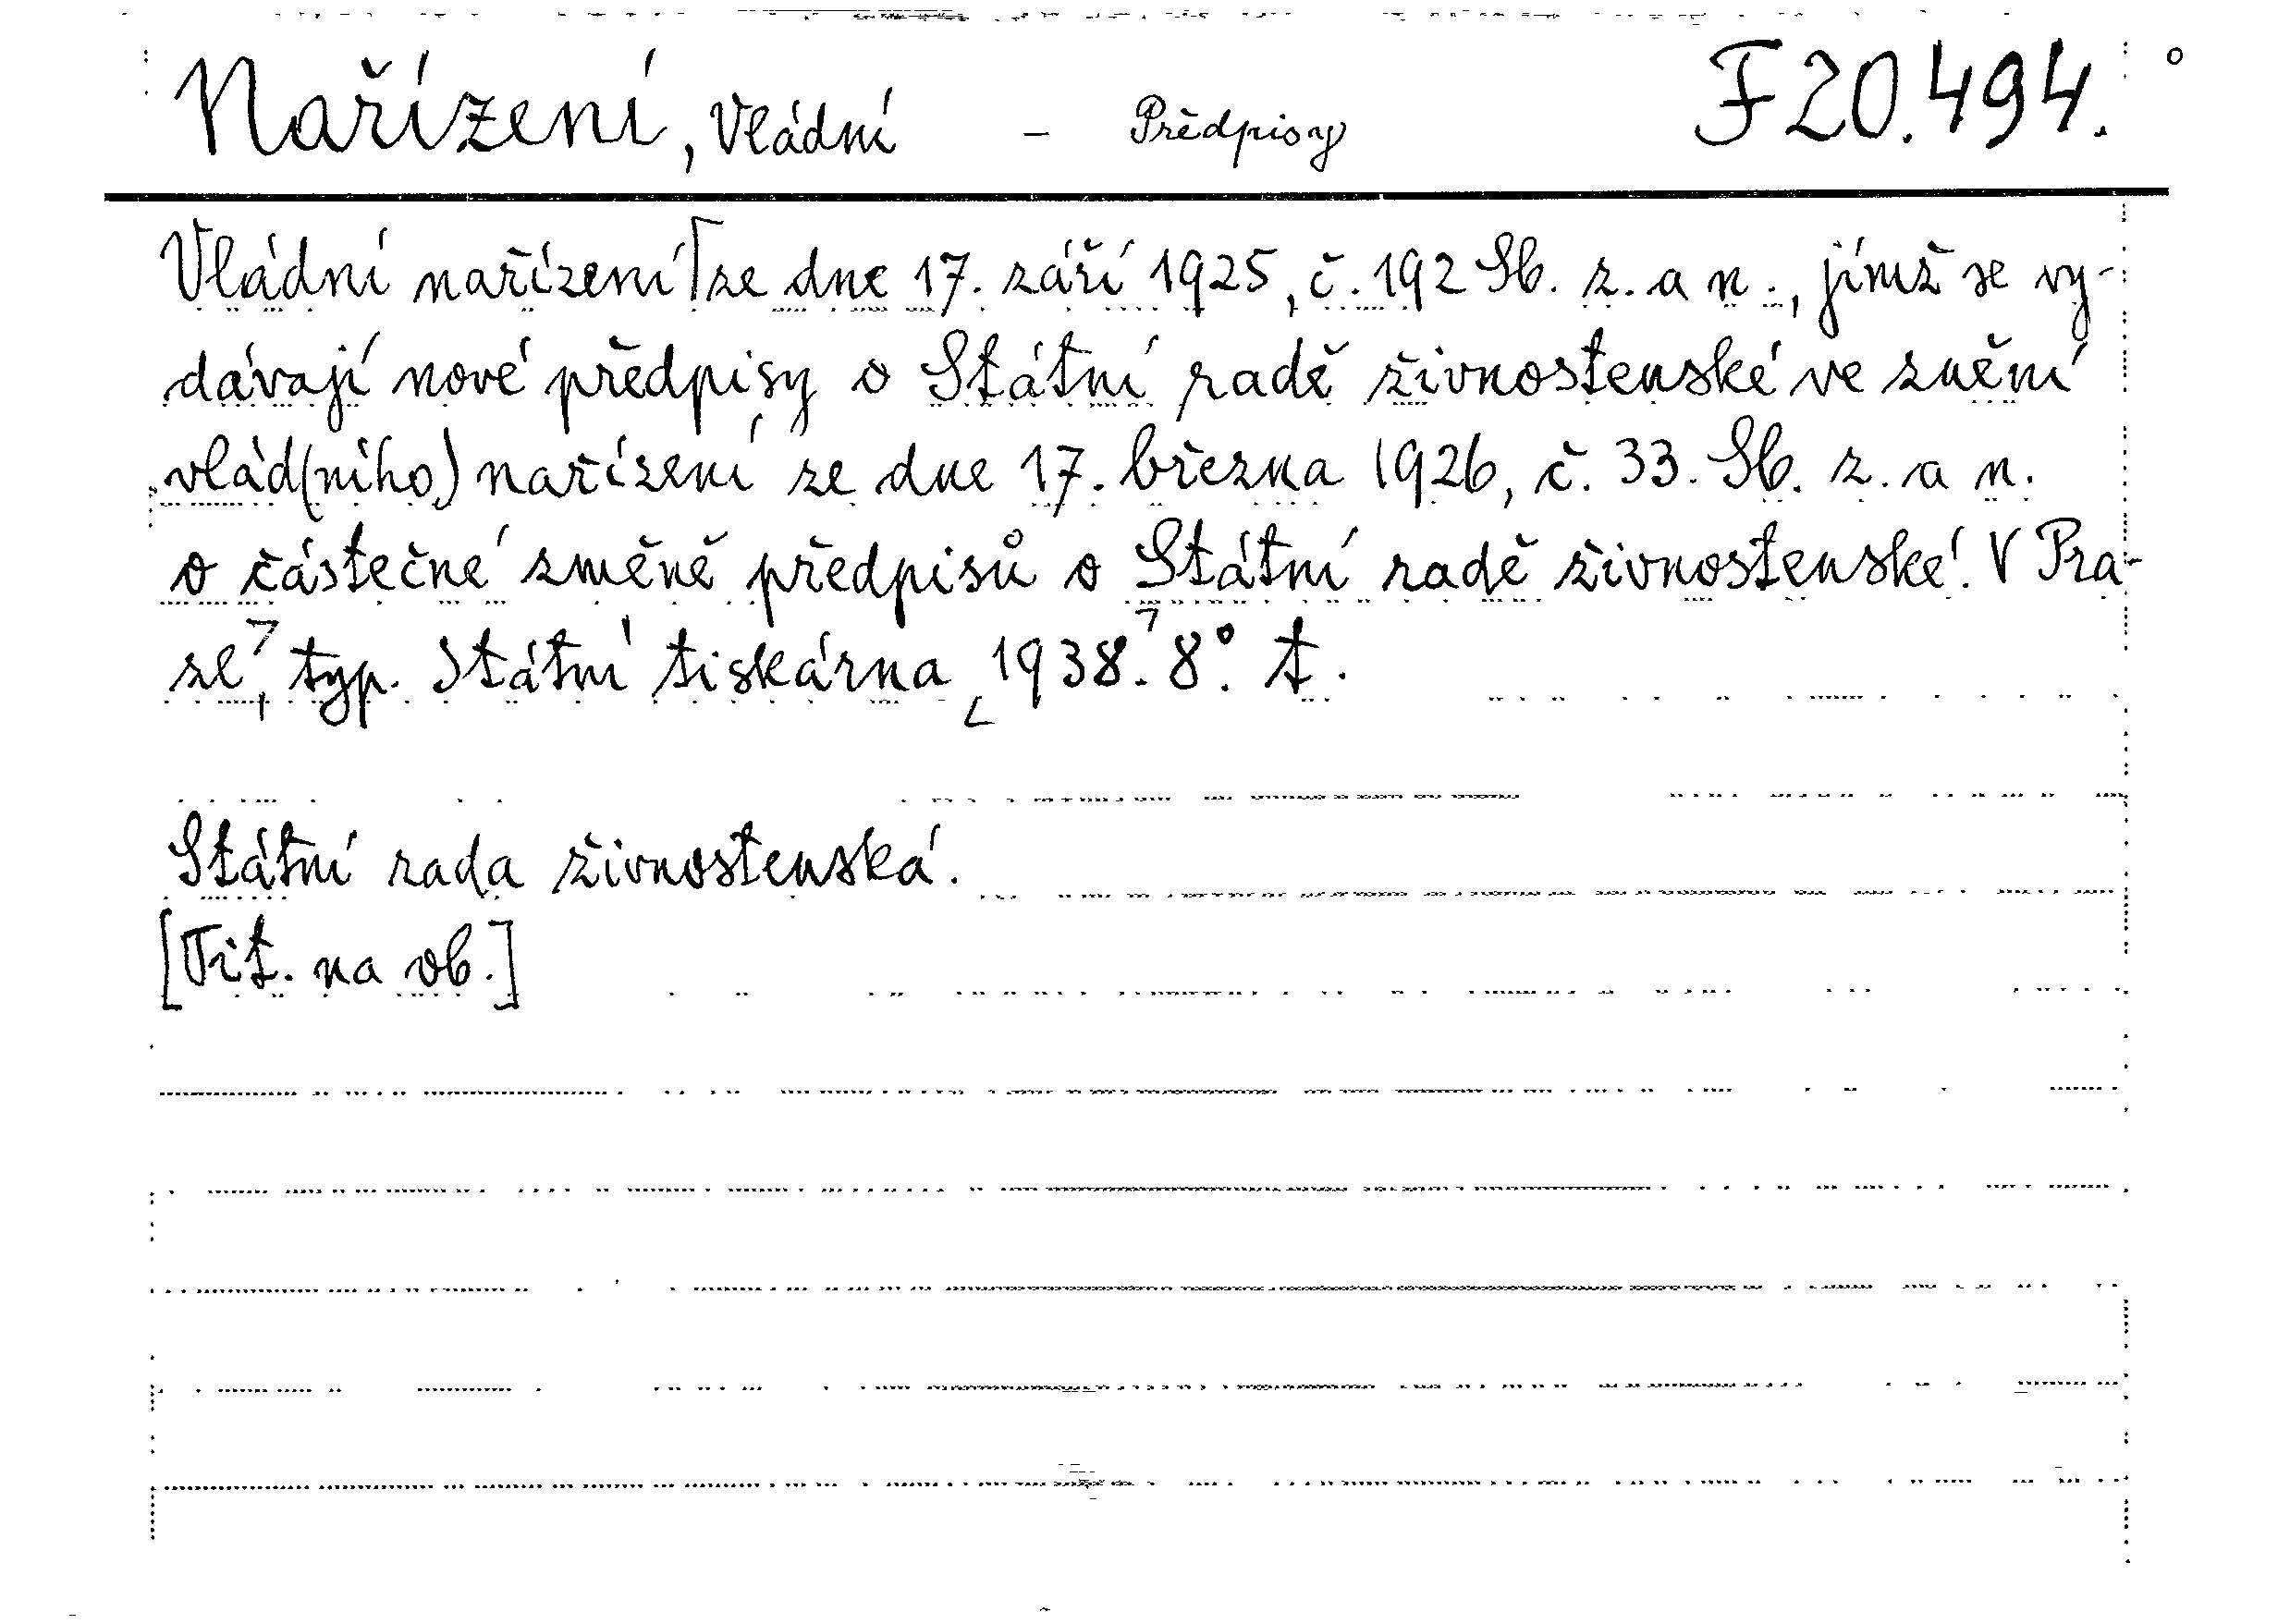 Nařízení, Vládní – Předpisy F 20.494.
Vládní nařízení ⌈ze dne 17. září 1925, č. 192 Sb. z. a n., jímž se vy-
dávají nové předpisy o Státní radě živnostenské ve znění
vlád(ního) nařízení ze dne 17. března 1926, č. 33. Sb. z. a n.
o částečné změně předpisů o Státní radě živnostenské. V Pra-
ze⌉, typ. Státní tiskárna ⌊1938.⌉ 8°. t.
Státní rada živnostenská.
[Tit. na ob.]